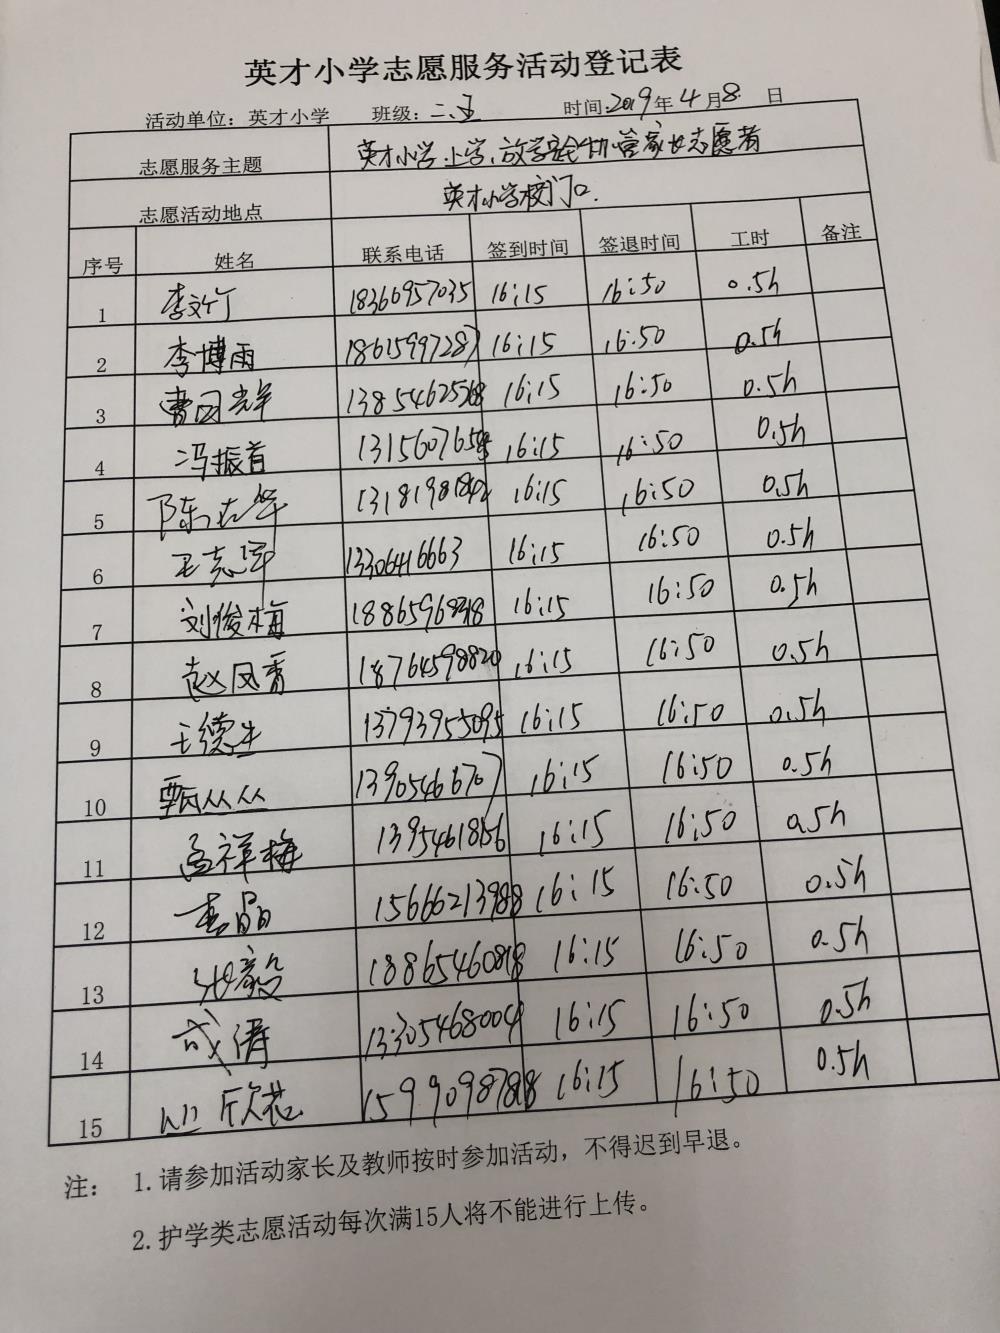 英才小学志愿服务活动登记表
活动单位：英才小学 班级：二.五 时间:2019年4月8日
志愿服务主题 英才小学上学、放学安全 管家长志愿者
志愿活动地点 英才小学校门口.
序号 姓名 联系电话 签到时间 签退时间 工时 备注
1 李文 18366957035 16:15 16:50 0.5h
2 李博雨 18615997287 16:15 16:50 0.5h
3 曹国 16:15 16:50 0.5h
4 冯振首 16:15 16:50 0.5h
5 陈志华 16:15 16:50 0.5h
6 王志 13306416663 16:15 16:50 0.5h
7 刘俊梅 16:15 16:50 0.5h
8 赵凤香 18764598820 16:15 16:50 0.5h
9 王德生 13793955095 16:15 16:50 0.5h
10 甄丛丛 13905466707 16:15 16:50 0.5h
11 孟祥梅 16:15 16:50 0.5h
12 晶 15666213988 16:15 16:50 0.5h
13 毅 16:15 16:50 0.5h
14 成倩 13305468004 16:15 16:50 0.5h
15 欣花 16:15 16:50 0.5h
注： 1.请参加活动家长及教师按时参加活动，不得迟到早退。
2.护学类志愿活动每次满15人将不能进行上传。